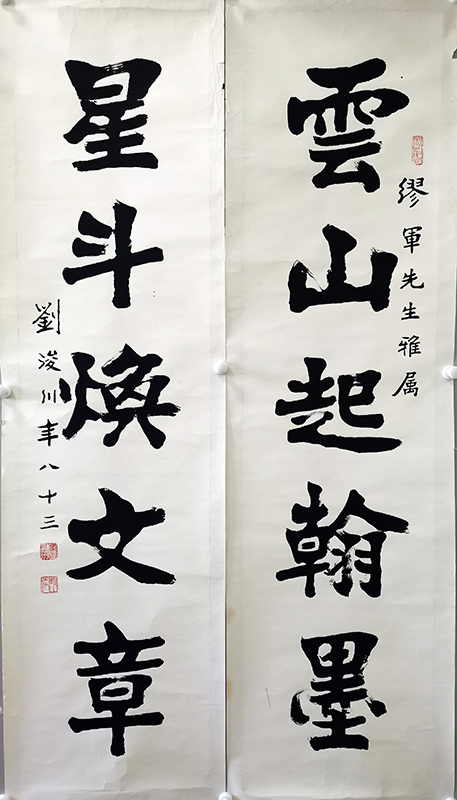 雲山起翰墨
繆軍先生雅属
星斗煥文章
劉浚川年八十三